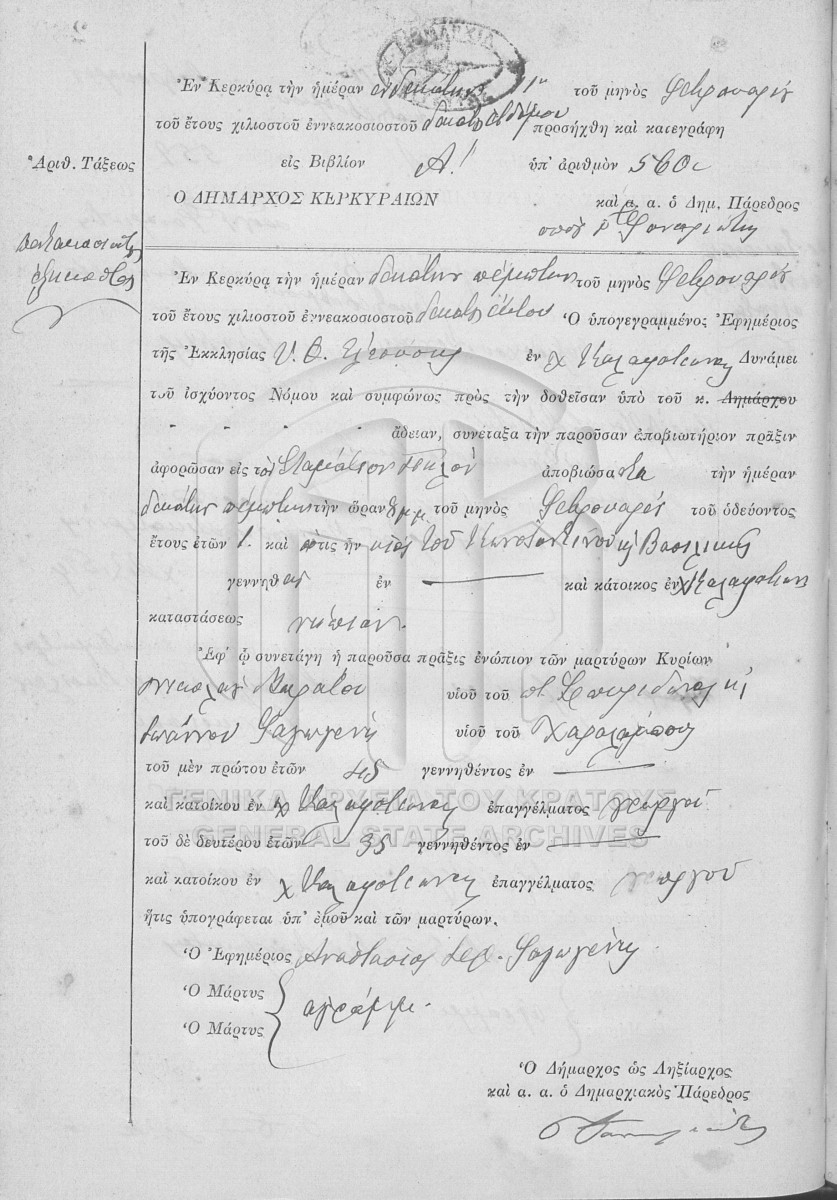 ΔΗΜΑΡΧΙΑ
Ἐν Κερκύρᾳ τὴν ἡμέραν τοῦ μηνὸς Φεβρουαρίου
τοῦ ἔτους χιλιοστοῦ ἐννεακοσιοστοῦ δεκάτου ἑβδόμου προσήχθη καὶ κατεγράφη
Ἀριθ. Τάξεως
εἰς Βιβλίον Α! ὑπ' ἀριθμὸν 560
Ο ΔΗΜΑΡΧΟΣ ΚΕΡΚΥΡΑΙΩΝ καὶ α. α. ὁ Δημ. Πάρεδρος
Ἐν Κερκύρᾳ τὴν ἡμέραν δεκάτην πέμπτην τοῦ μηνὸς Φεβρουαρίου
τοῦ ἔτους χιλιοστοῦ ἐννεακοσιοστοῦ Ὁ ὑπογεγραμμένος Ἐφημέριος
τῆς Ἐκκλησίας Υ. Θ. Ἐλεούσης ἐν χ Καλαφατιώνων Δυνάμει
τοῦ ἰσχύοντος Νόμου καὶ συμφώνως πρὸς τὴν δοθεῖσαν ὑπὸ τοῦ κ. Δημάρχου
ἄδειαν, συνέταξα τὴν παροῦσαν ἀποβιωτήριον πρᾶξιν
ἀφορῶσαν εἰς τὸν Σταμάτιον ἀποβιώσαντα τὴν ἡμέραν
δεκάτην πέμπτην τὴν ὥραν τοῦ μηνὸς Φεβρουαρίου τοῦ ὁδεύοντος
ἔτους ἐτῶν 1. καὶ ὅστις ἦν υἱὸς τοῦ Κωνσταντίνου κ Βασιλικῆς
γεννηθεὶς ἐν — καὶ κάτοικος ἐν χ Καλαφατιώνων
καταστάσεως νήπιον.
Ἐφ' ᾧ συνετάγη ἡ παροῦσα πρᾶξις ἐνώπιον τῶν μαρτύρων Κυρίων
Νικολάου υἱοῦ τοῦ π. Σπυρίδωνος κ
Ἰωάννου Σαγωγένη υἱοῦ τοῦ Χαραλάμπους
τοῦ μὲν πρώτου ἐτῶν 45 γεννηθέντος ἐν —
καὶ κατοίκου ἐν χ Καλαφατιώνων ἐπαγγέλματος γεωργοῦ
τοῦ δὲ δευτέρου ἐτῶν 35 γεννηθέντος ἐν —
καὶ κατοίκου ἐν χ Καλαφατιώνων ἐπαγγέλματος γεωργοῦ
ἥτις ὑπογράφεται ὑπ' ἐμοῦ καὶ τῶν μαρτύρων.
Ὁ Ἐφημέριος Ἀναστάσιος Ἱερ. Σαγωγένης
Ὁ Μάρτυς
ἀγράμμ.
Ὁ Μάρτυς
Ὁ Δήμαρχος ὡς Ληξίαρχος
καὶ α. α. ὁ Δημαρχιακὸς Πάρεδρος
ΓΕΝΙΚΑ ΑΡΧΕΙΑ ΤΟΥ ΚΡΑΤΟΥΣ
GENERAL STATE ARCHIVES